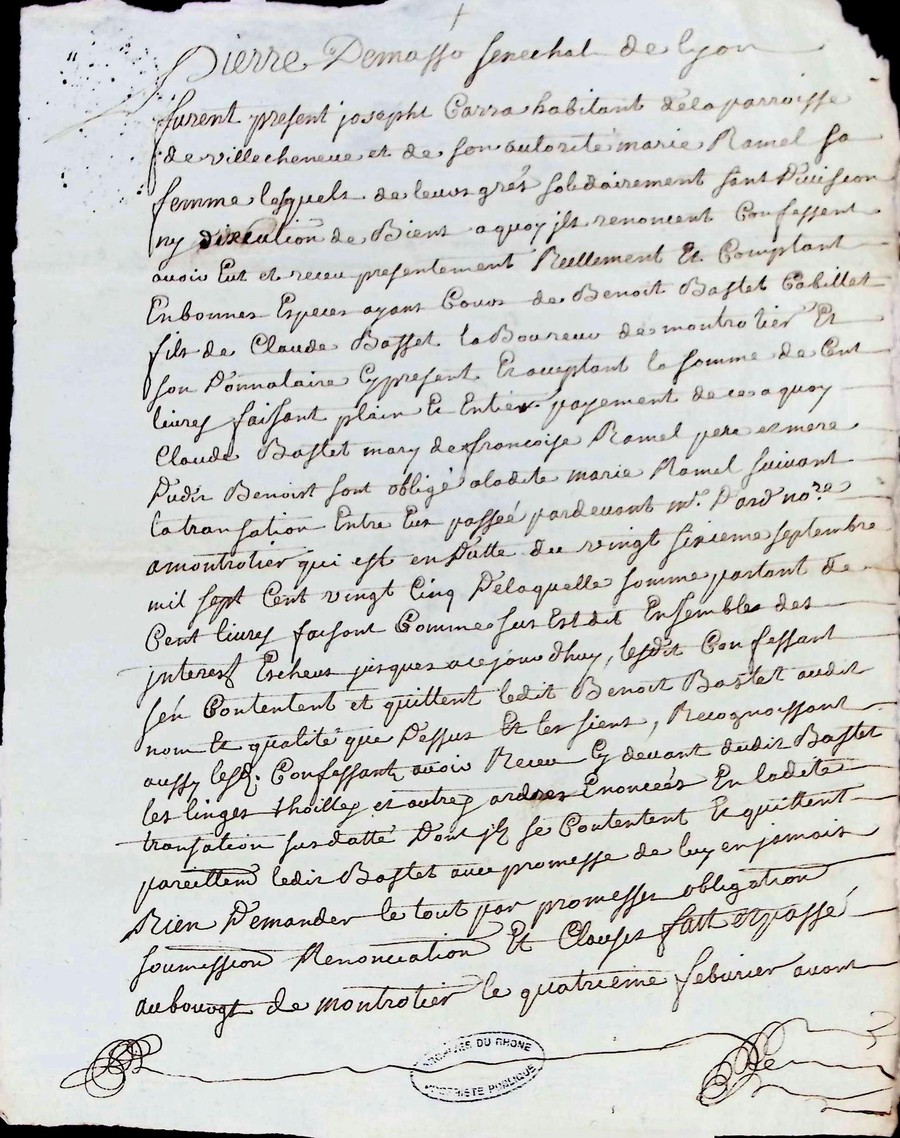 Pierre Demasso senechal de lyon
furent present joseph Carra habitant dela parroisse
de villecheneve et de son autorité marie Ramel sa
femme lesquels de leurs grés solidairement sans Division
ny dixcution de Biens a quoy jls renoncent Confessent
avoir Eut et receu presentement Reellement Et Comptant
En bonnes Especes ayant Cours de Benoit Bastet
fils de Claude Basset laBoureur de montrotier Et
son Donnataire Cypresent Et acceptant la somme de Cent
livres faisant plain Et Entier payement de ce a quoy
Claude Bastet mary de francoise Ramel pere et mere
Dudit Benoist sont obligé a ladite marie Ramel suivant
la transation Entre Eux passée pardevant me. Dard nore
a montrotier qui est en Datte du vingt sixieme septembre
mil sept Cent vingt Cinq Delaquelle somme partant de
Cent livres faisant Comme sus Est dit Ensembles des
interest Escheus jusques a ce jourdhuy, lesdit Confessant
sén Contentent et quittent ledit Benoit Bastet audit
nom Et qualité que Dessus Et les siens, Recognoissant
aussy lesd. Confessant avoir Receu Cy devant dudit Bastet
les linges thoilles et autres ardres Enoncées En ladite
transation susdatté Dont jls se Contentent Et quittent
pareillemt ledit Bastet avec promesse de luy en jamais
Rien Demander le tout par promesses obligation
soumission Renonciation Et Clauses fait et passé
au bourgt de montrotier le quatrieme febvrier avant
ARCHIVES DU RHONE
PROPRIETE PUBLIQUE